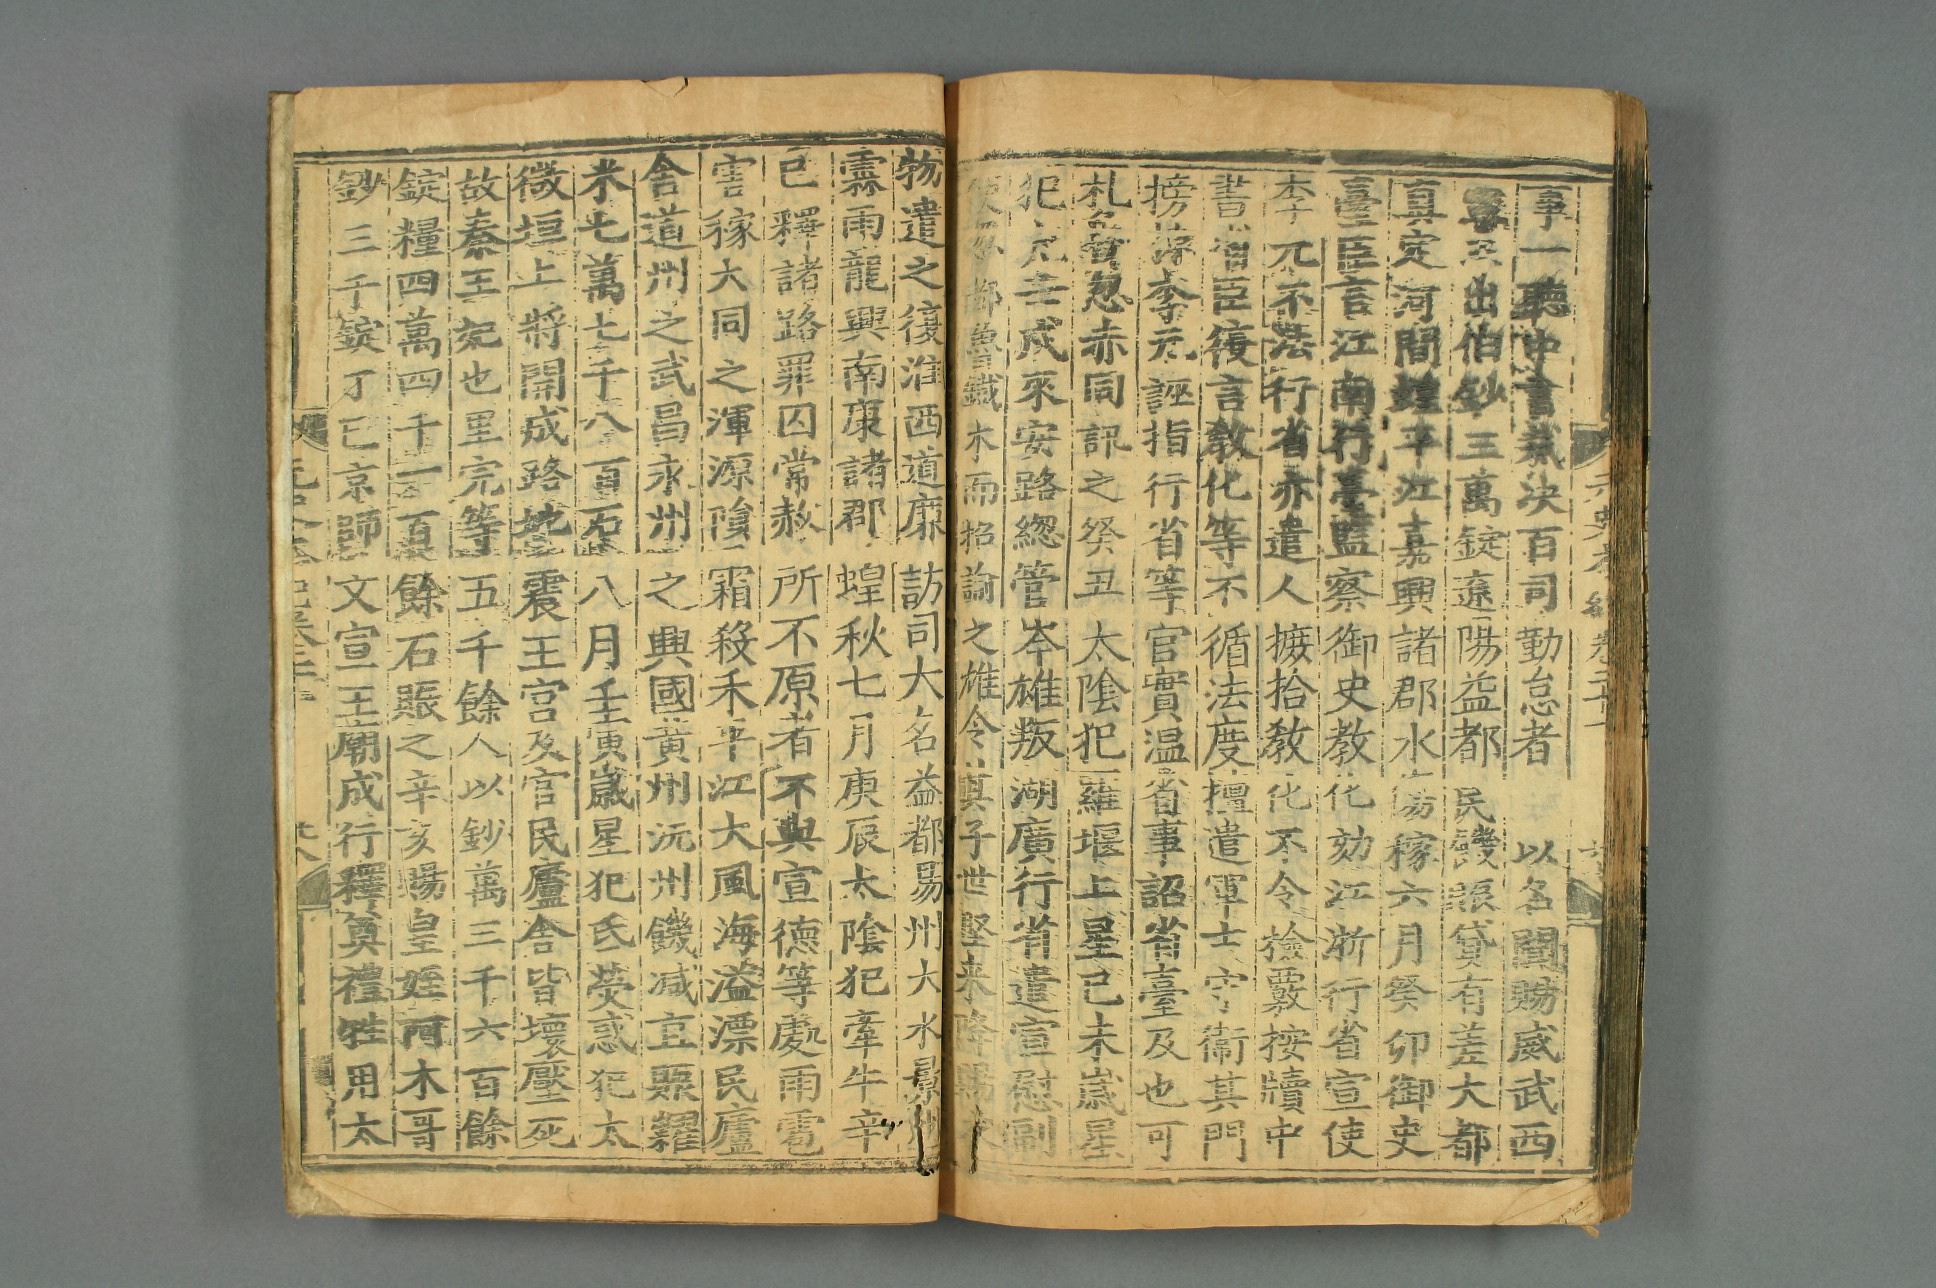 事一聽中書裁決百司勤怠者以名聞賜威武西
寧王出伯鈔三萬錠遼陽益都民饑賑貸有差大都
真定河間蝗平江嘉興諸郡水傷稼六月癸卯御史
臺臣言江南行臺監察御史教化劾江浙行省宣使
李元不法行省亦遣人摭拾教化不令檢覈按牘中
書省臣復言教化等不循法度擅遣軍士守衛其門
搒掠李元誣指行省等官實溫省事詔省臺及也可
札魯忽赤同訊之癸丑太陰犯羅堰上星己未歲星
犯亢壬戌來安路總管岑雄叛湖廣行省遣宣慰副
都魯鐵木而招諭之雄令其子世堅來降賜衣
物遣之復淮西道廉訪司大名益都易州大水景州
霖雨龍興南康諸郡蝗秋七月庚辰太陰犯牽牛辛
巳釋諸路罪囚常赦所不原者不與宣德等處雨雹
害稼大同之渾源隕霜殺禾平江大風海溢漂民廬
舍道州之武昌永州之興國黃州沅州饑減直賑糶
米七萬七千八百石八月壬寅歲星犯氐熒惑犯太
微垣上將開成路地震王宮及官民廬舍皆壞壓死
故秦王妃也里完等五千餘人以鈔萬三千六百餘
錠糧四萬四千一百餘石賑之辛亥賜皇姪阿木哥
鈔三千錠丁巳京師文宣王廟成行釋奠禮牲用太